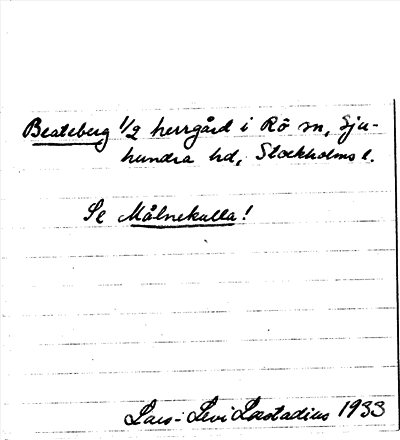 Beateberg 1/2 herrgård i Rö sn, Sju-
hundra hd, Stockholms l.
Se Målnekulla!
Lars-Levi Læstadius 1933